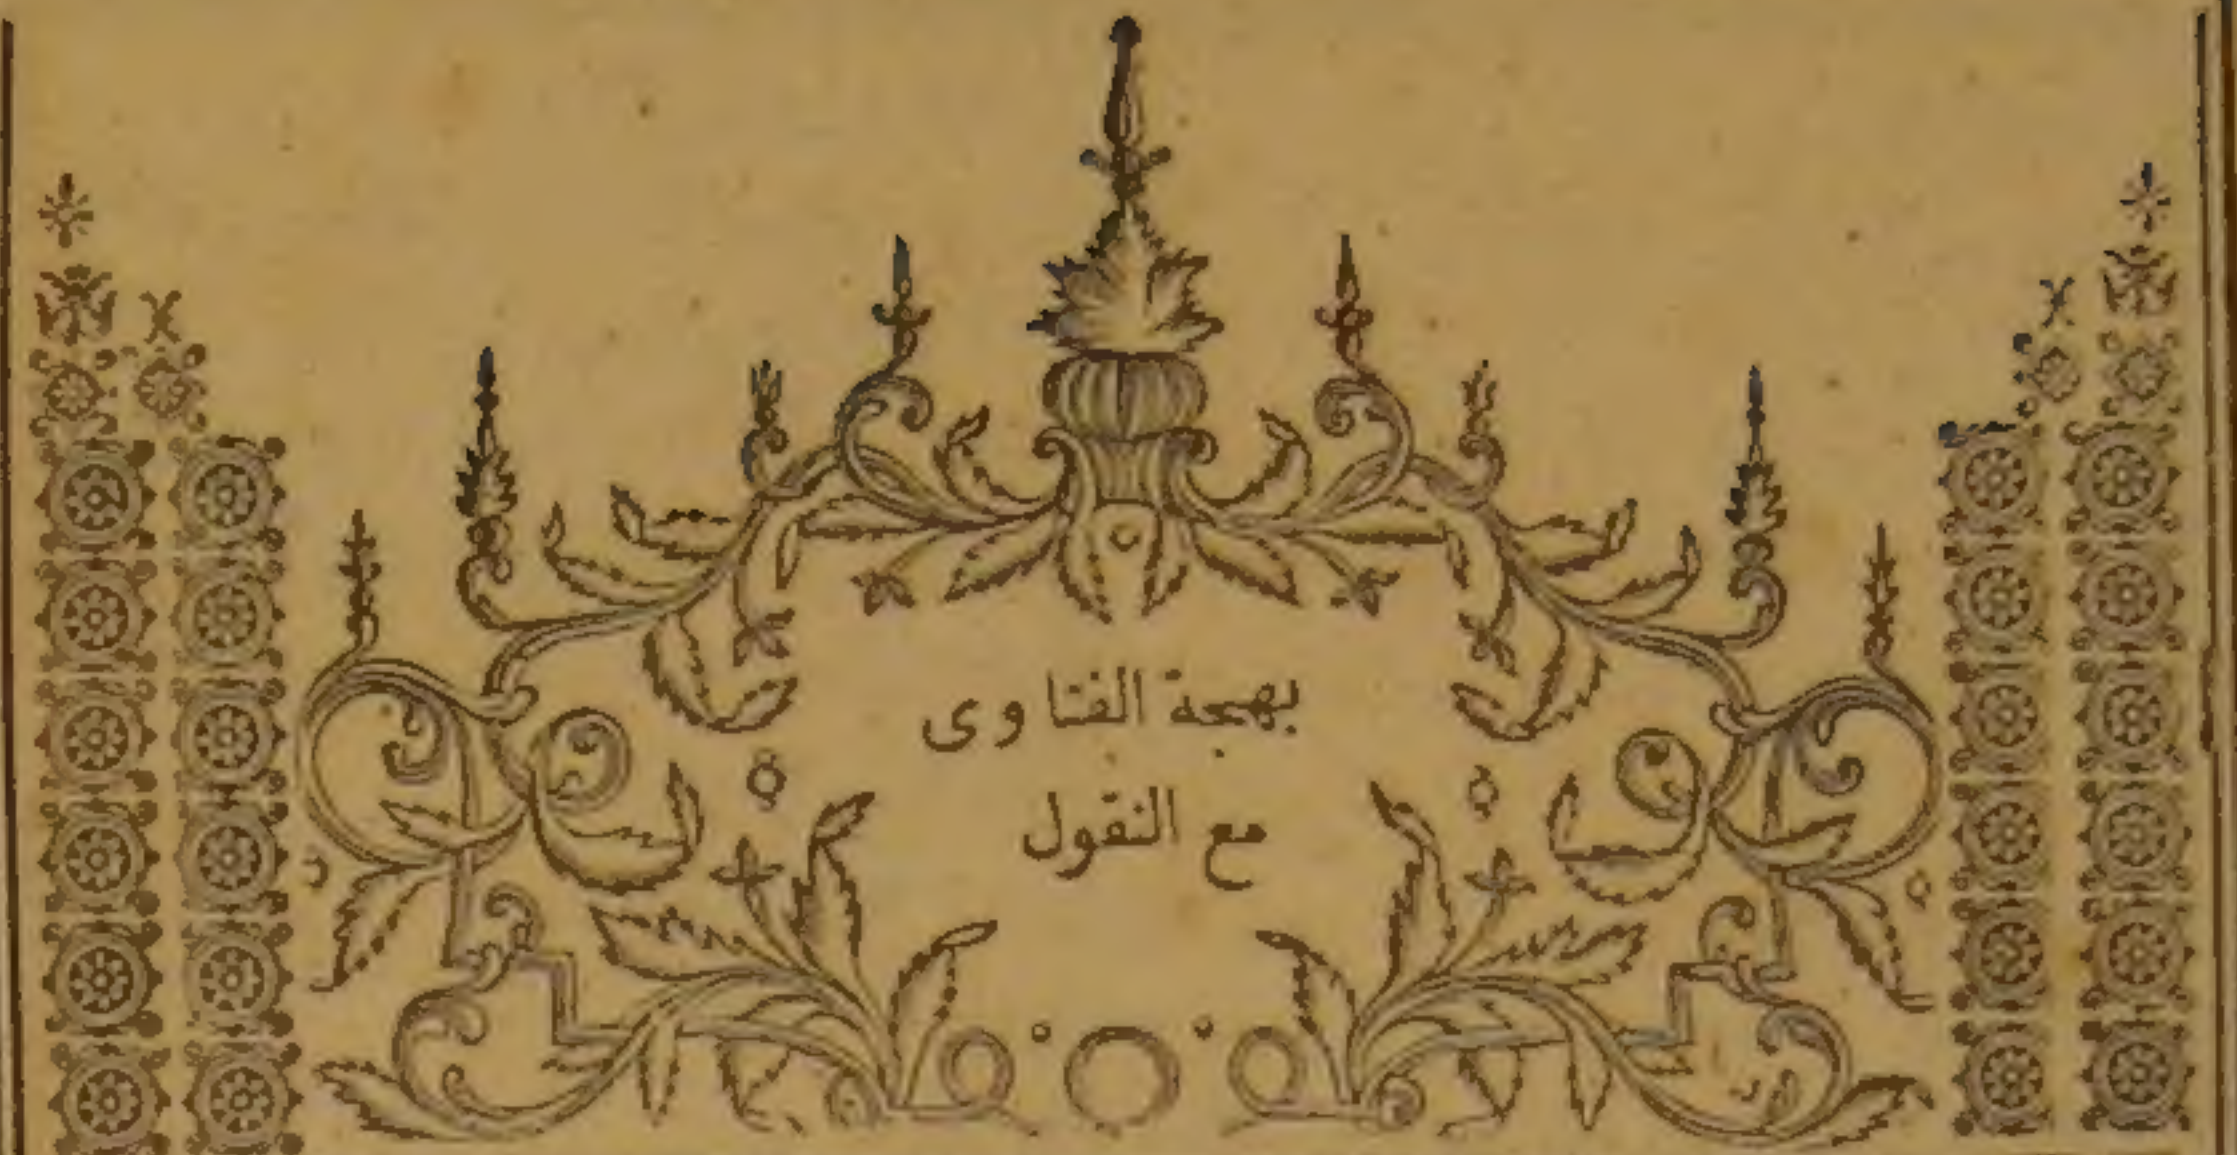 بهجة الفتاوى
مع النقول